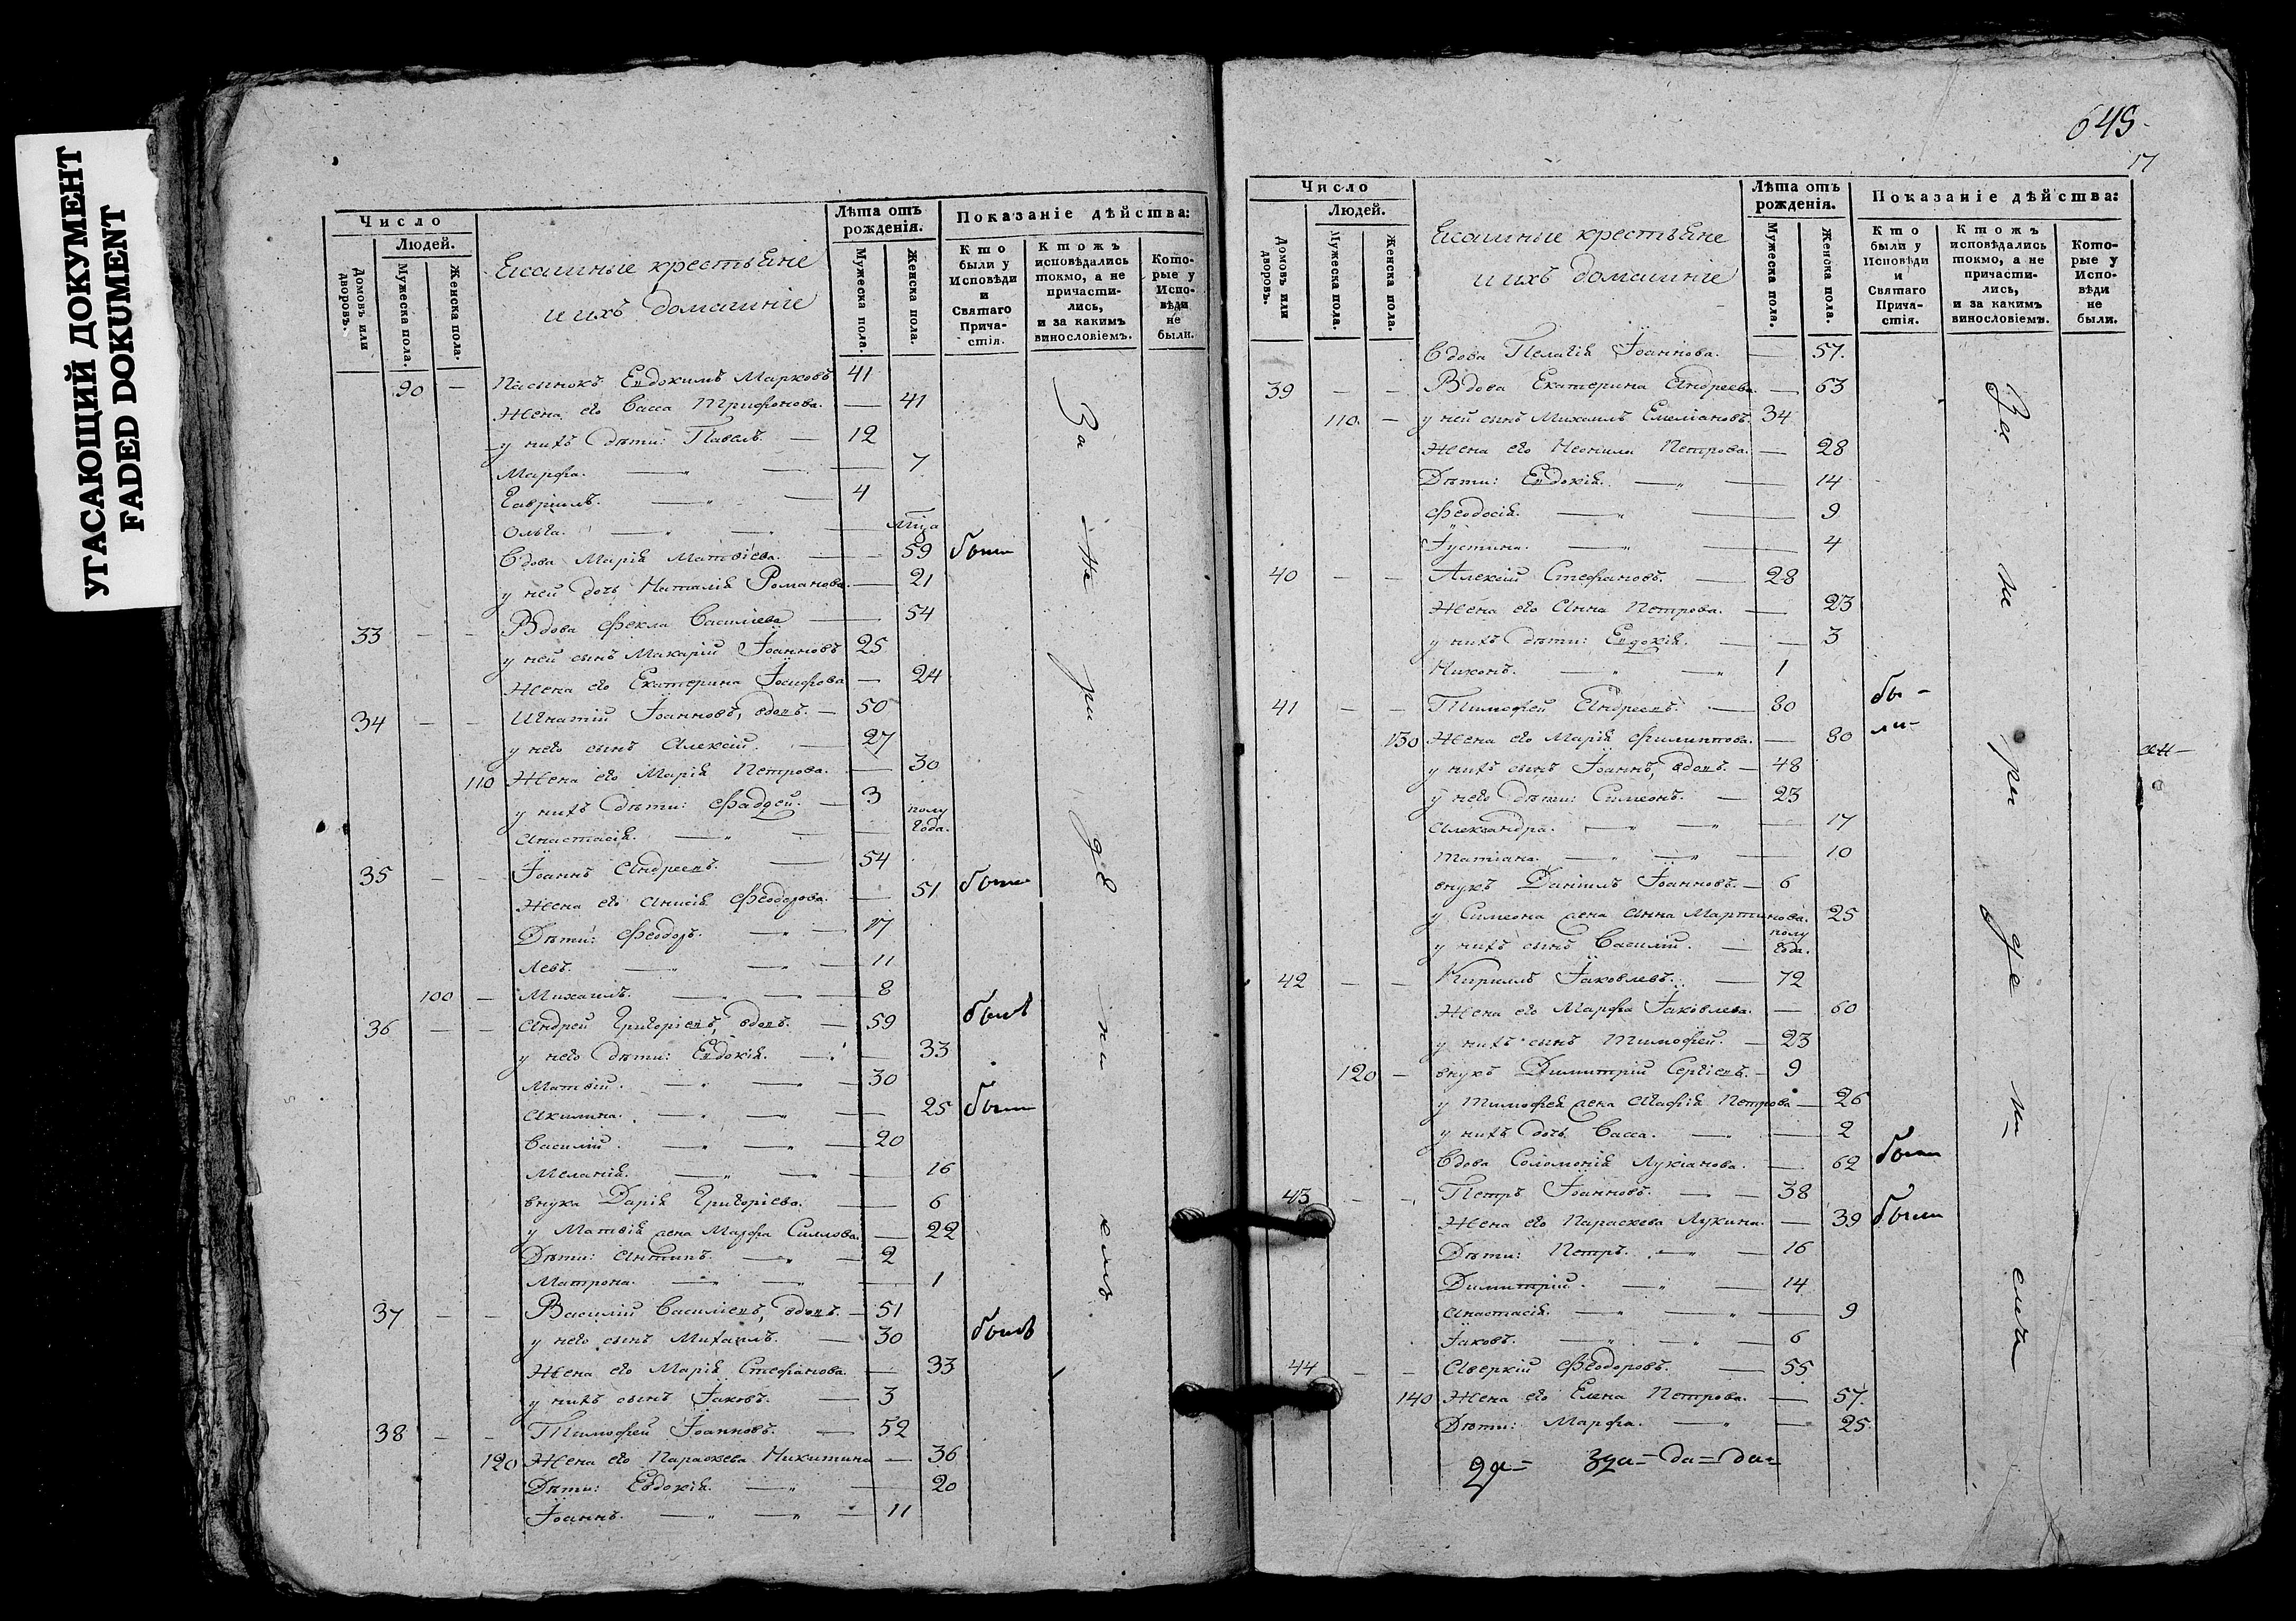 УГАСАЮЩИЙ ДОКУМЕНТ
FADED DOKUMENT
Число
Людей.
Домовъ или дворовъ.
Мужеска пола.
Женска пола.
крестьяне
и ихъ домашніе
Лѣта отъ рожденія.
Мужеска пола.
Женска пола.
Показаніе дѣйства:
Кто были у Исповѣди и Святаго Причастія.
Ктожъ исповѣдались токмо, а не причастились, и за какимъ винословіемъ.
Которые у Исповѣди не были.
90 — Пасынокъ Евдокимъ Марковъ 41
Жена его Васса Трифонова. — 41
у нихъ дѣти: Павелъ. — 12
Марфа. — " — — 7
Гавріилъ. — " — 4
Ольга. — " — " —
Вдова Марія Матвіева. — — 59 были
у ней дочь Наталія Романова. — 21
33 — — Вдова Фекла Василіева — 54
у ней сынъ Макарій Іоанновъ 25
Жена его Екатерина Іосифова — 24
34 — — Игнатій Іоанновъ, вдовъ. — 50
у него сынъ Алексій. — 27
110 Жена его Марія Петрова. — 30
у нихъ дѣти: Фаддей. — 3
Анастасія. — " — — полу года.
35 — — Іоаннъ Андреевъ. — 54
Жена его Анисія Феодорова. — 51 были
Дѣти: Феодоръ. — " — 17
Левъ. — " — " — 11
100 — Михаилъ. — " — " — 8
36 — — Андрей Григоріевъ, вдовъ. — 59 былъ
у него дѣти: Евдокія. — " — 33
Матвій. — " — " — 30
Акилина. — " — " — 25 были
Василій. — " — " — 20
Меланія. — " — " — 16
внука Дарія Григоріева. — 6
у Матвія жена Марфа Силлова. — 22
Дѣти: Антипъ. — " — 2
Матрона. — " — " — 1
37 — — Василій Василіевъ, вдовъ. — 51
у него сынъ Михаилъ. — 30 былъ
Жена его Марія Стефанова. — 33
у нихъ сынъ Іаковъ. — 3
38 — — Тимофей Іоанновъ. — 52
120 Жена его Параскева Никитина — 36
Дѣти: Евдокія. — " — 20
Іоаннъ. — " — " — 11
За не ра де ні емъ
649
17
Число
Людей.
Домовъ или дворовъ.
Мужеска пола.
Женска пола.
крестьяне
и ихъ домашніе
Лѣта отъ рожденія.
Мужеска пола.
Женска пола.
Показаніе дѣйства:
Кто были у Исповѣди и Святаго Причастія.
Ктожъ исповѣдались токмо, а не причастились, и за какимъ винословіемъ.
Которые у Исповѣди не были.
Вдова Пелагія Іоаннова. — 57.
39 — — Вдова Екатерина Андреева — 63
110. — у ней сынъ Михаилъ Емеліановъ. 34
Жена его Неонила Петрова. — 28
Дѣти: Евдокія. — " — 14
Феодосія. — " — 9
Іустина. — " — 4
40 — — Алексій Стефановъ. — 28
Жена его Анна Петрова. — 23
у нихъ дѣти: Евдокія. — — 3
Никонъ. — " — " 1
41 — — Тимофей Андреевъ. — 80 бы-
130 Жена его Марія Филиппова. — 80 ли-
у нихъ сынъ Іоаннъ, вдовъ. — 48
у него дѣти: Симеонъ. — 23
Александра. — " — " — 17
Татіана. — " — " — 10
внукъ Даніилъ Іоанновъ. — 6
у Симеона жена Анна Мартинова. 25
у нихъ сынъ Василій. — полу года.
42 — — Кириллъ Іаковлевъ. — 72
Жена его Марфа Іаковлева. — 60
у нихъ сынъ Тимофей. — 23
120 — внукъ Димитрій Сергіевъ. — 9
у Тимофея жена Агафія Петрова — 26
у нихъ дочь Васса. — " — 2
Вдова Соломонія Лукіанова. — 62 были
43 — — Петръ Іоанновъ. — — 38
Жена его Параскева Лукина. — 39 были
Дѣти: Петръ. — " — 16
Димитрій. — " — 14
Анастасія. — " — " — 9
Іаковъ. — " — " — 6
44 — — Аверкій Феодоровъ. — 55
140 Жена его Елена Петрова. — 57.
Дѣти: Марфа. — " — 25.
За не ра де ні емъ